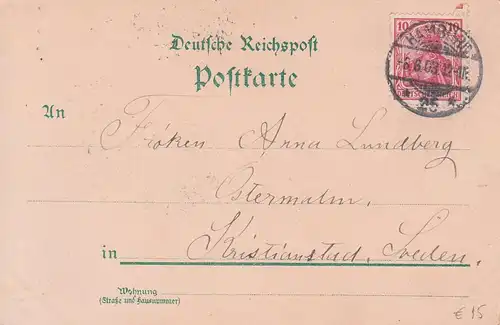 Deutsche Reichspost
Postkarte
10 10
HAMBURG
25
An
Fröken Anna Lundberg
Östermalm.
in Kristianstad, Sveden.
Wohnung
(Straße und Hausnummer)
€ 15